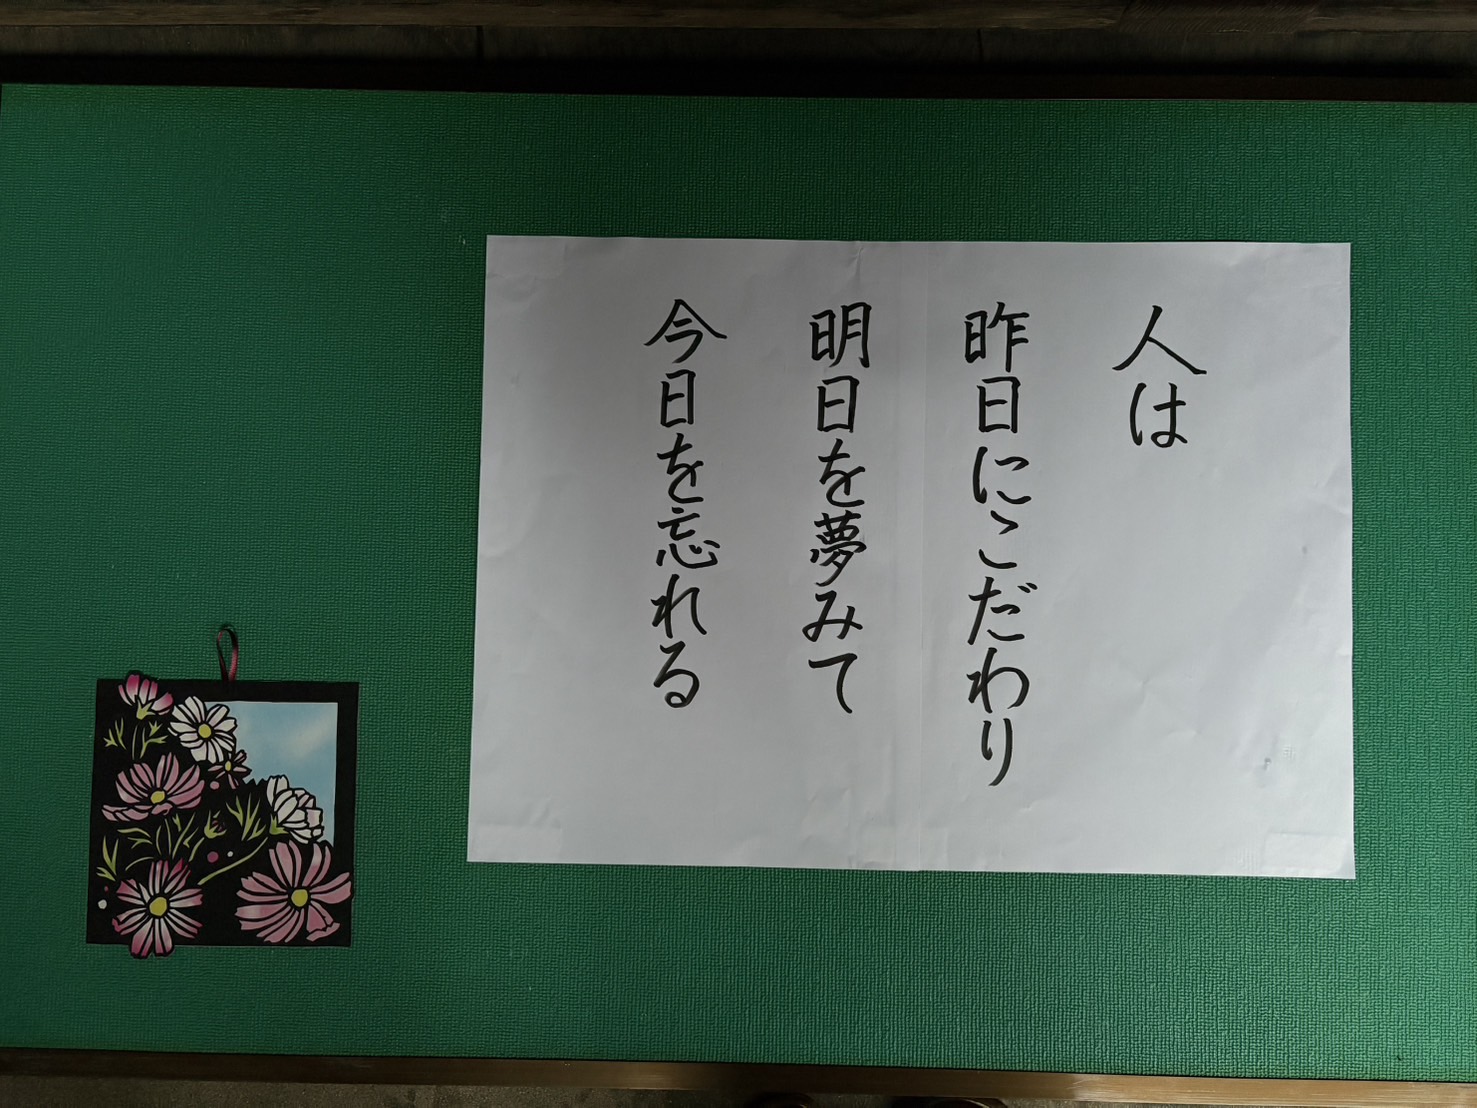 人は
昨日にこだわり
明日を夢みて
今日を忘れる